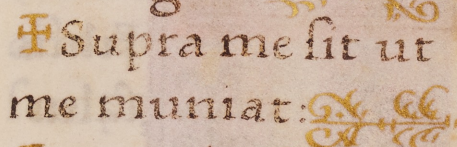 ✠ Supra me ſit ut
me muniat: